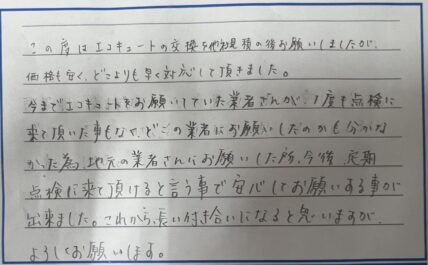 この度はエコキュートの交換を他社見積の後お願いしましたが、
価格も安く、どこよりも早く対応して頂きました。
今までエコキュートをお願いしていた業者さんが、1度も点検に
来て頂いた事もなく、どこの業者にお願いしたのかも分からな
かった為、地元の業者さんにお願いした所、今後、定期
点検に来て頂けると言う事で安心してお願いする事が
出来ました。これから、長い付き合いになると思いますが、
よろしくお願いします。